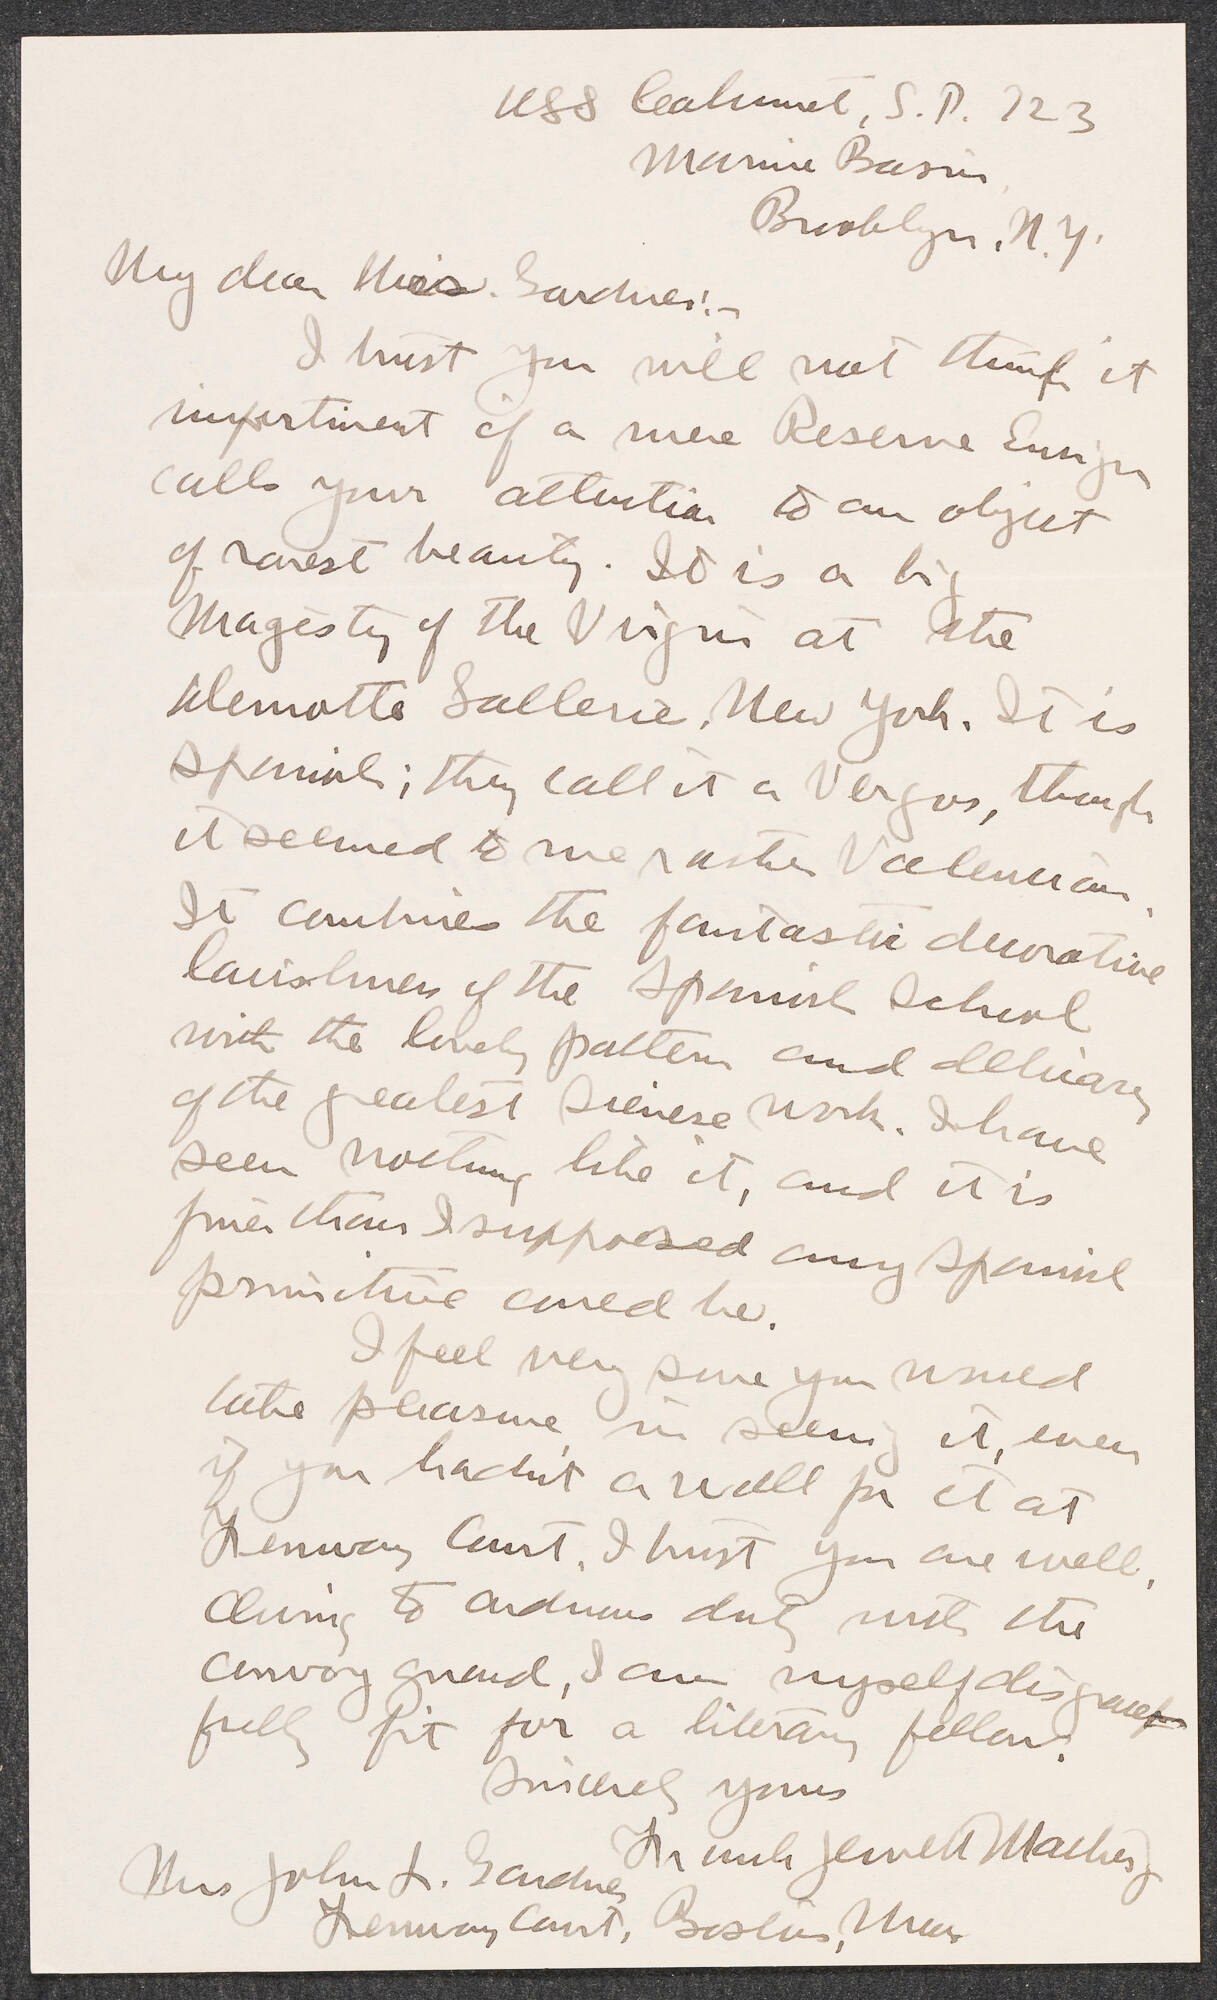 USS Calumet, S.P. 723
Marine Basin
Brooklyn, N.Y.
My dear Mrs. Gardner:-
I trust you will not think it
impertinent if a mere Reserve Ensign
calls your attention to an object
of rarest beauty. It is a big
Magesty of the Virgin at the
Demotte Gallerie, New York. It is
Spanish; they call it a Vergos, though
it seemed to me rather Valencian.
It combines the fantastic decorative
lavishness of the Spanish School
with the lovely pattern and delicacy
of the greatest Sienese work. I have
seen nothing like it, and it is
finer than I supposed any Spanish
primitive could be.
I feel very sure you would
take pleasure in seeing it, even
if you hadn't a wall for it at
Fenway Court. I trust you are well.
Owing to arduous duty with the
convoy guard, I am myself disgrace-
fully fit for a literary fellow.
Sincerely yours
Frank Jewett Mather Jr
Mrs John L. Gardner
Fenway Court, Boston, Mass